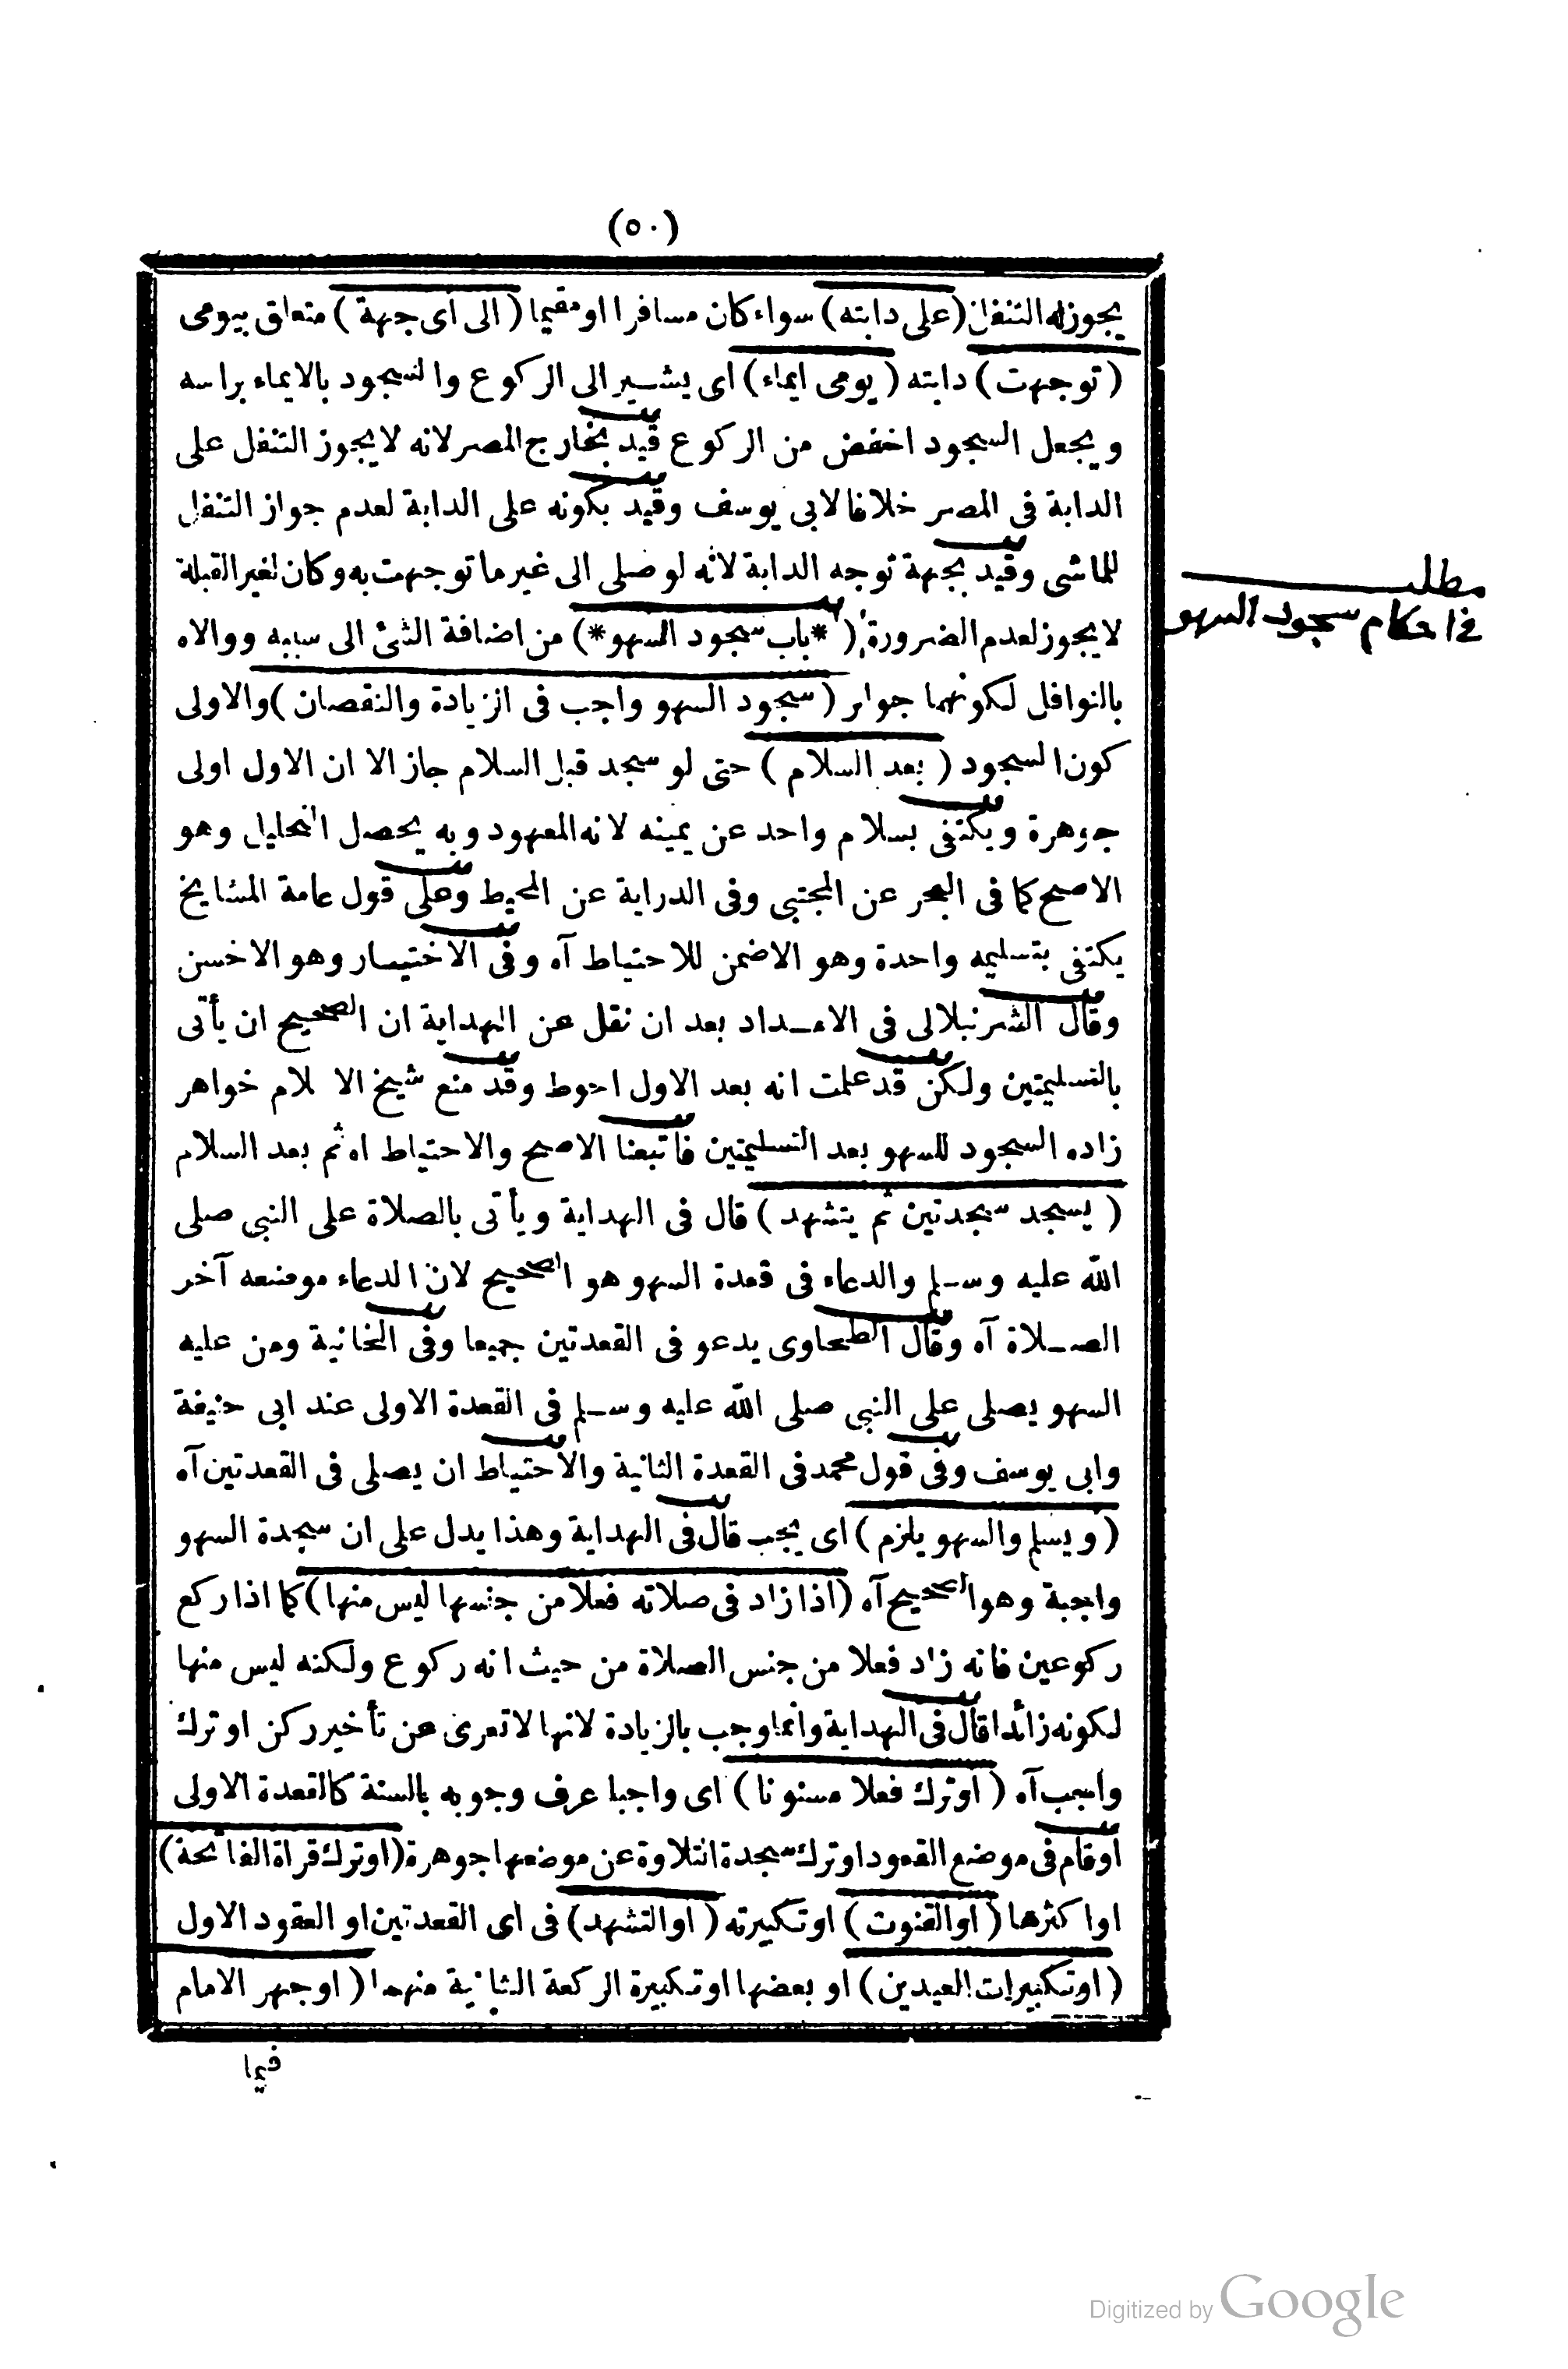 (٥٠)
يجوز له التنفل (على دابته) سواء كان مسافرا او مقيما (الى اى جهة) متعلق بيومى
(توجهت) دابته (يومى ايماء) اى يشير الى الركوع والسجود بالايماء براسه
ويجعل السجود اخفض من الركوع قيد بخارج المصر لانه لا يجوز التنفل على
الدابة فى المصر خلافا لابى يوسف وقيد بكونه على الدابة لعدم جواز التنفل
للماشى وقيد بجهة توجه الدابة لانه لو صلى الى غير ما توجهت به وكان لغير القبلة
لا يجوز لعدم الضرورة (*باب سجود السهو*) من اضافة الشئ الى سببه ووالاه
بالنوافل لكونهما جوابر (سجود السهو واجب فى الزيادة والنقصان) والاولى
كون السجود (بعد السلام) حتى لو سجد قبل السلام جاز الا ان الاول اولى
جوهرة ويكتفى بسلام واحد عن يمينه لانه المعهود وبه يحصل التحليل وهو
الاصح كما فى البحر عن المجتبى وفى الدراية عن المحيط وعلى قول عامة المشايخ
يكتفى بتسليمه واحدة وهو الاضمن للاحتياط آه وفى الاختيسار وهو الاخسن
وقال الشرنبلالى فى الامداد بعد ان نقل عن الهداية ان الصحيح ان يأتى
بالتسليمتين ولكن قد علمت انه بعد الاول احوط وقد منع شيخ الا لام خواهر
زاده السجود للسهو بعد التسليمتين فاتبعنا الاصح والاحتياط اه ثم بعد السلام
(يسجد سجدتين ثم يتشهد) قال فى الهداية ويأتى بالصلاة على النبى صلى
الله عليه وسلم والدعاء فى قعدة السهو هو الصحيح لان الدعاء موضعه آخر
الصلاة آه وقال الطحاوى يدعو فى القعدتين جميعا وفى الخانية ومن عليه
السهو يصلى على النبى صلى الله عليه وسلم فى القعدة الاولى عند ابى حنيفة
وابى يوسف وفى قول محمد فى القعدة الثانية والاحتياط ان يصلى فى القعدتين آه
(ويسلم والسهو يلزم) اى يجب قال فى الهداية وهذا يدل على ان سجدة السهو
واجبة وهو الصحيح آه (اذا زاد فى صلاته فعلا من جنسها ليس منها) كما اذا ركع
ركوعين فانه زاد فعلا من جنس الصلاة من حيث انه ركوع ولكنه ليس منها
لكونه زائدا قال فى الهداية وانما وجب بالزيادة لانها لا تعرى عن تأخير ركن او ترك
واجب آه (او ترك فعلا مسنونا) اى واجبا عرف وجوبه بالسنة كالقعدة الاولى
او قام فى موضع القعود او ترك سجدة التلاوة عن موضعها جوهرة (او ترك قراة الفاتحة)
او اكثرها (او القنوت) او تكبيرته (او التشهد) فى اى القعدتين او العقود الاول
(او تكبيرات العيدين) او بعضها او تكبيرة الركعة الثانية منهما (او جهر الامام
فيما
مطلب
فى احكام سجود السهو
Digitized by Google